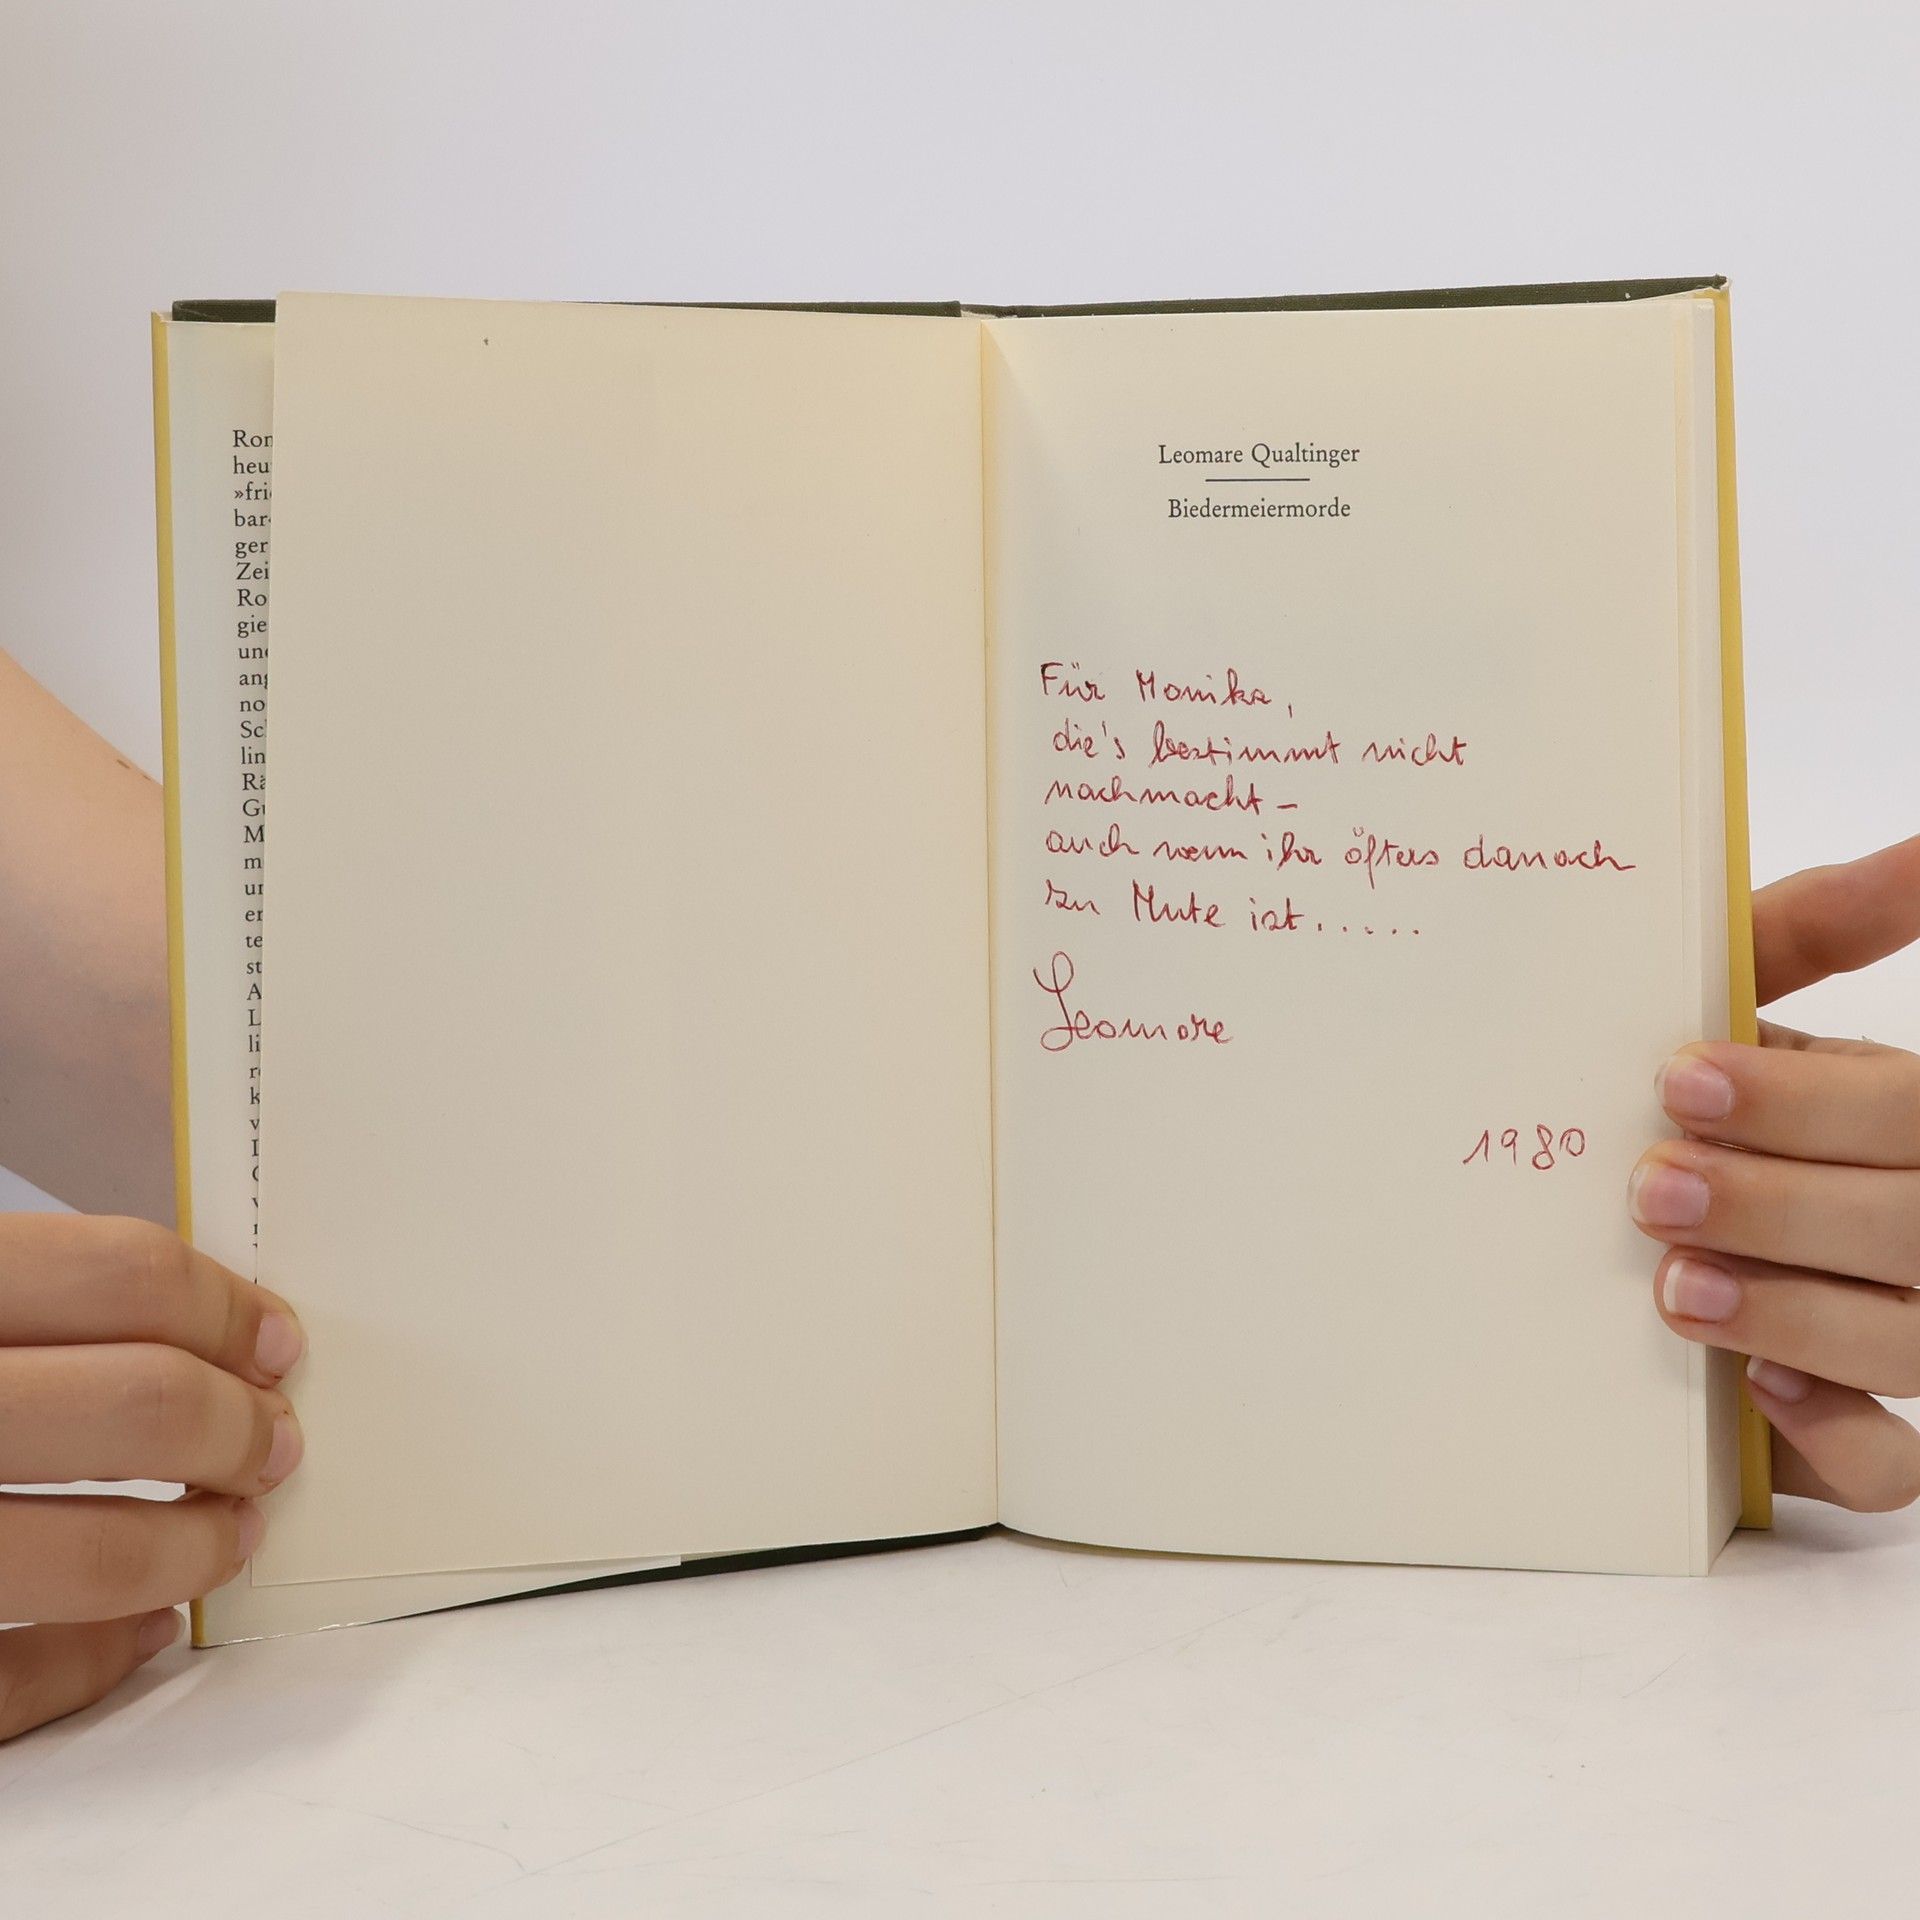 Ror
heu
»fri
bar
ger
Zei
Ro
gie
und
ang
no
Sc
lin
Rä
Gu
M
m
ur
er
te
st
A
L
li
r
k
v
Leomare Qualtinger
Biedermeiermorde
Für Monika,
die's bestimmt nicht
nachmacht –
auch wenn ihr öfters danach
zu Mute ist.....
Leomare
1980